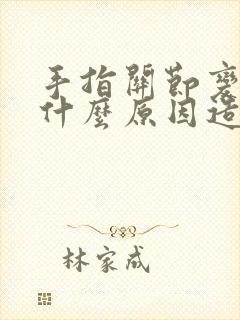 手指關節
什麼原因造
林家成